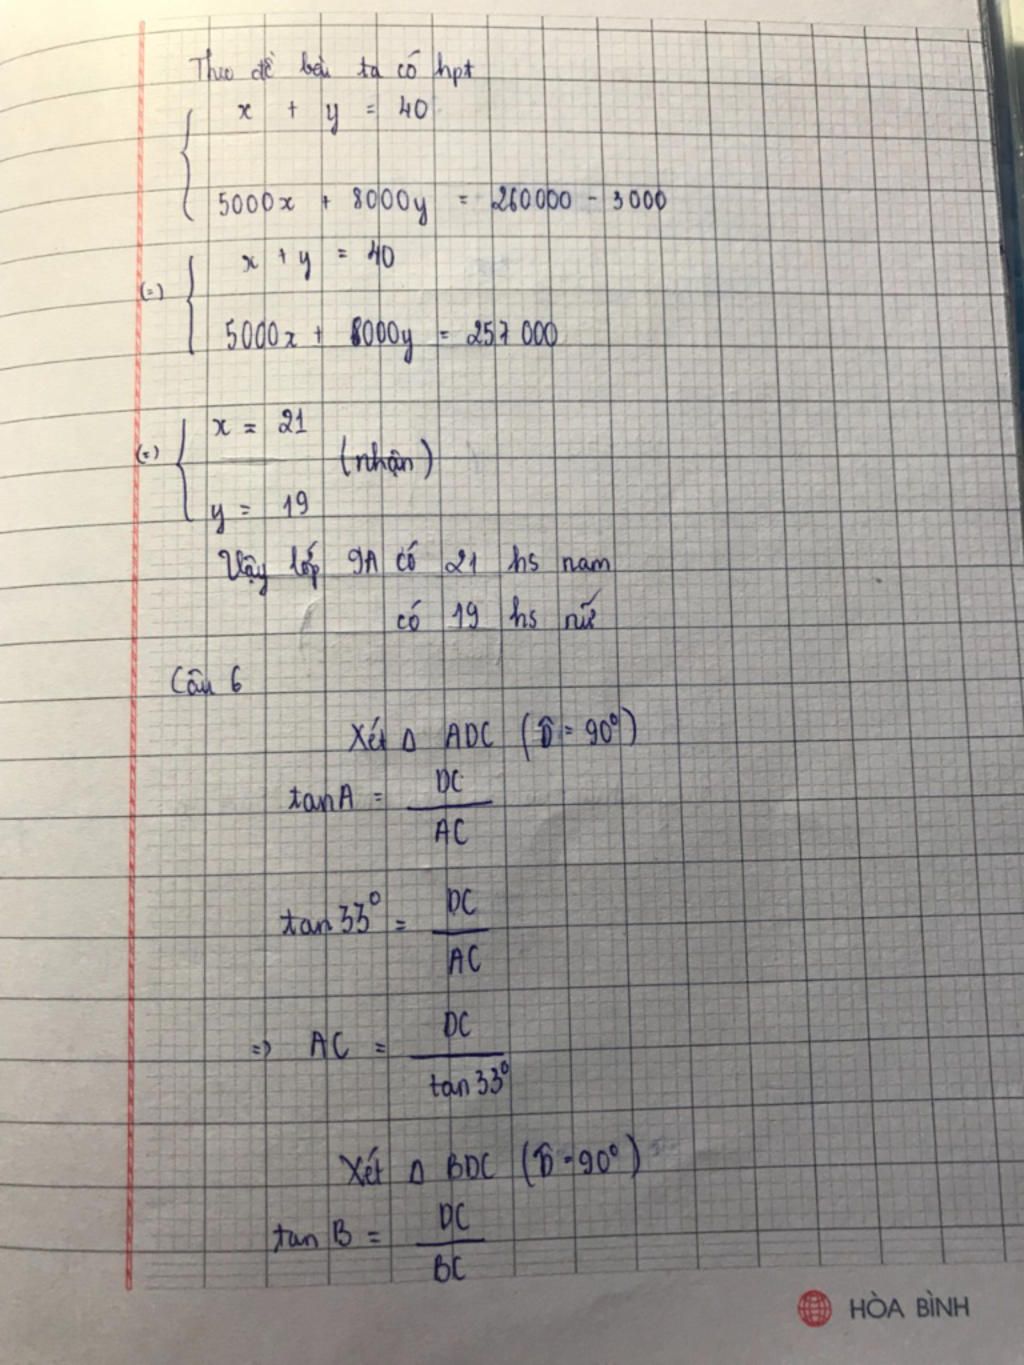 Theo đề bài ta có hpt
x + y = 40
5000x + 8000y = 260000 - 3000
(=) x + y = 40
5000x + 8000y = 257 000
(=) x = 21
(nhận)
y = 19
Vậy lớp 9A có 21 hs nam
có 19 hs nữ
Câu 6
Xét Δ ADC (D̂ = 90°)
tanA = DC / AC
tan33° = DC / AC
=> AC = DC / tan33°
Xét Δ BDC (D̂ = 90°)
tan B = DC / BC
HÒA BÌNH